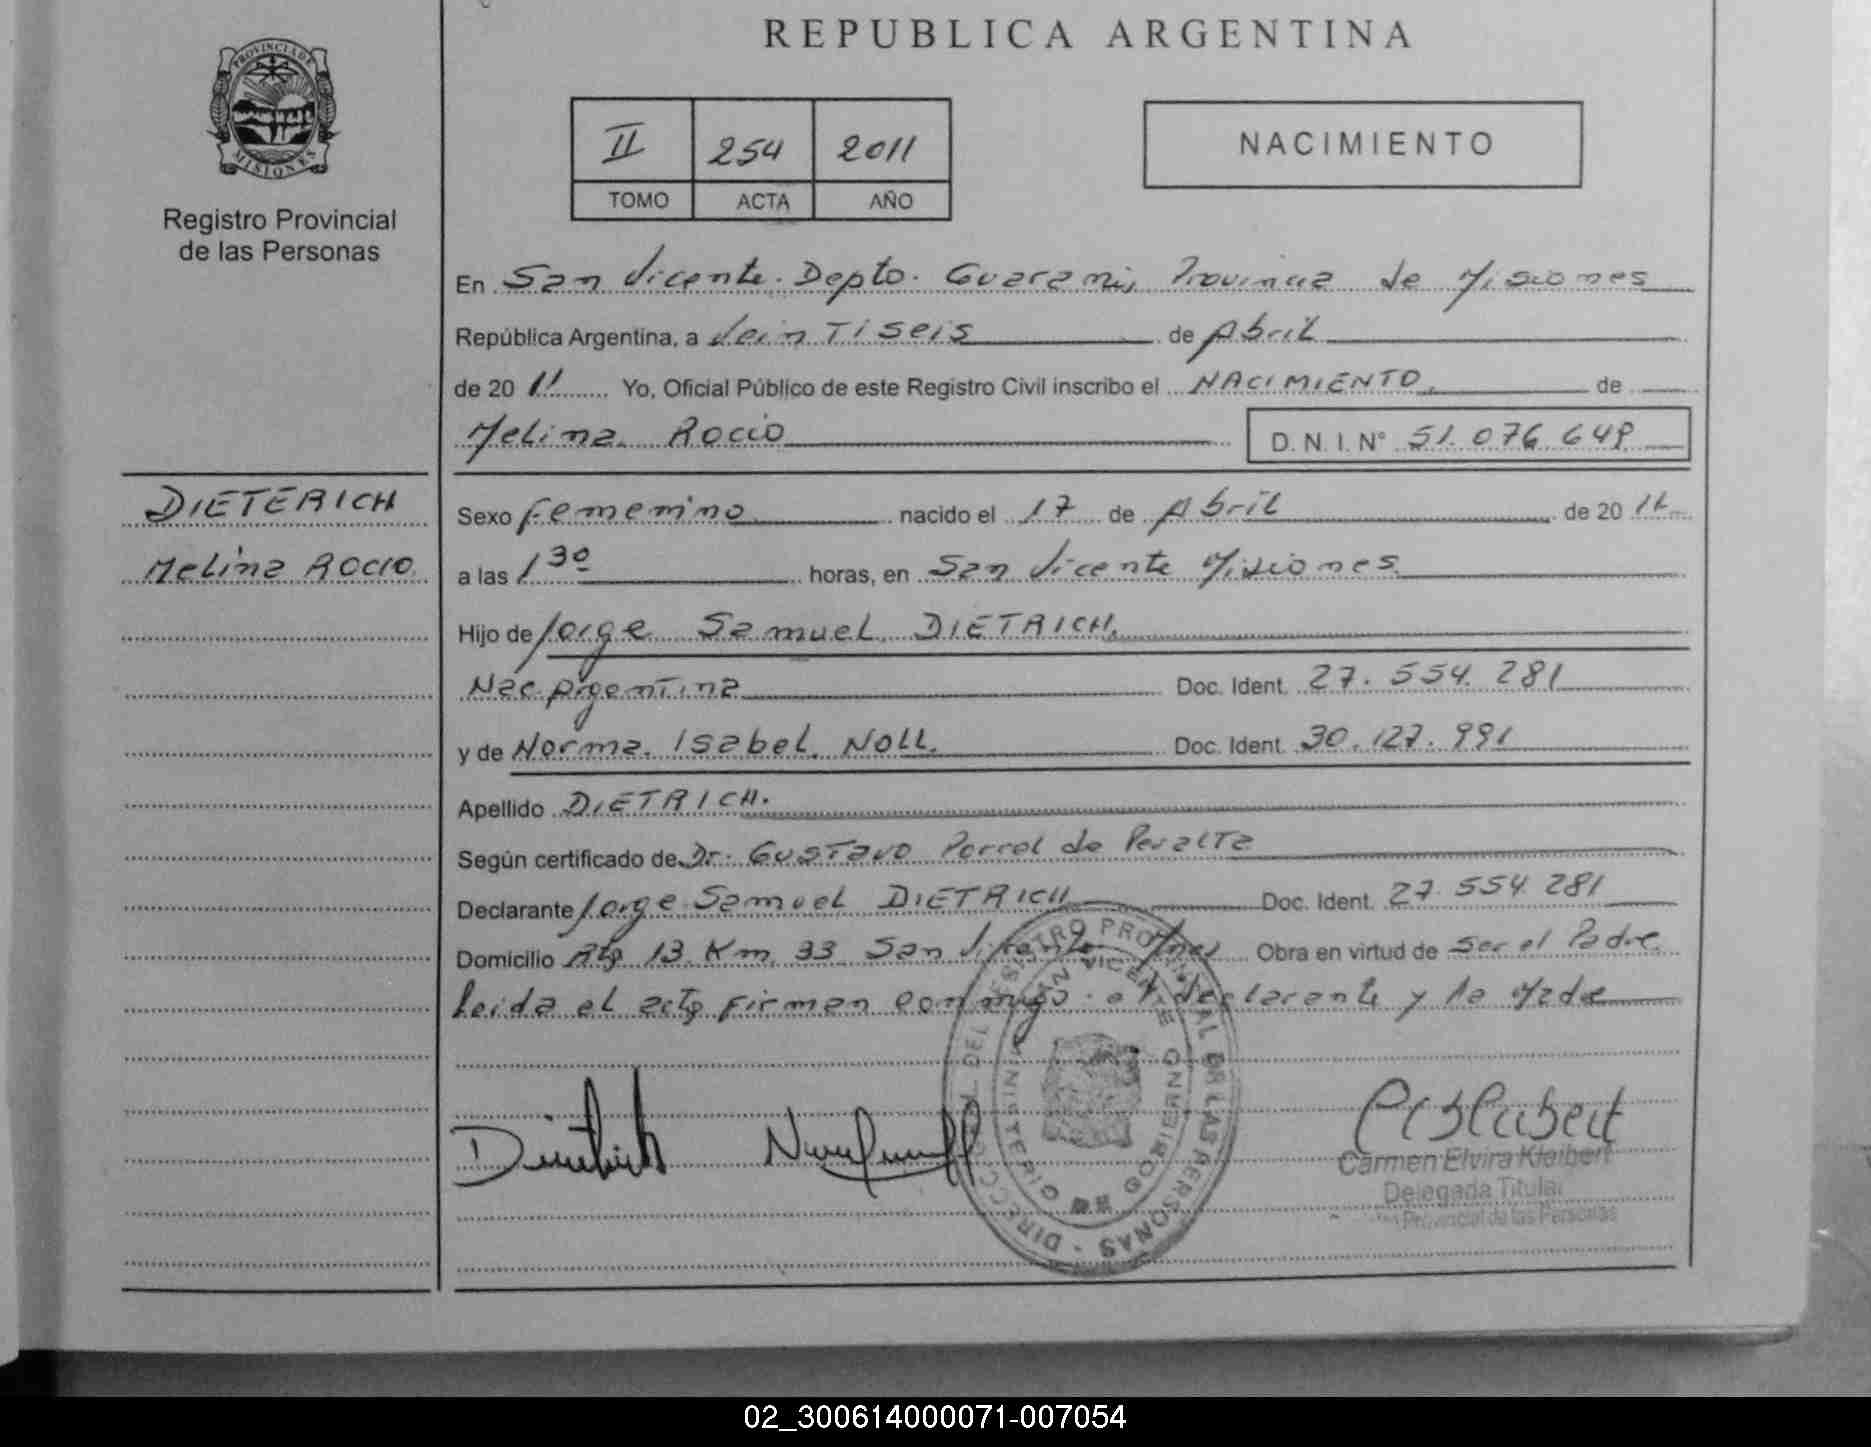 REPUBLICA ARGENTINA
PROVINCIA DE
MISIONES
Registro Provincial
de las Personas
II 254 2011
TOMO ACTA AÑO
NACIMIENTO
En San Vicente. Depto. Guarani, Provincia de Misiones
República Argentina, a veinTiseis de Abril
de 20 11 Yo, Oficial Público de este Registro Civil inscribo el NACIMIENTO. de
Melina Rocio D. N. I. N° 51.076.649
DIETERICH
Melina Rocio
Sexo femenino nacido el 17 de Abril de 20 11
a las 1 30 horas, en San Vicente Misiones
Hijo de Jorge Samuel DIETRICH.
Nac. Argentina Doc. Ident. 27.554.281
y de Norma Isabel NOLL. Doc. Ident. 30.127.991
Apellido DIETRICH.
Según certificado de Dr. Gustavo Porrol de Peralta
Declarante Jorge Samuel DIETRICH Doc. Ident. 27.554.281
Domicilio Rta 13 Km. 33 San Vicente Mnes Obra en virtud de ser el Padre
leida el acta firman conmigo el declarante y la Madre
Carmen Elvira Kleibert
Delegada Titular
Provincial de las Personas
SAN VICENTE
MINISTERIO GOBIERNO
02_300614000071-007054